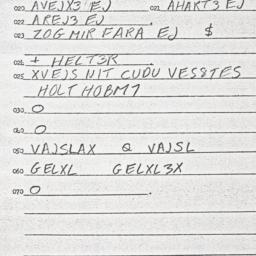 020 AVEJX3 EJ 021 AHART3 EJ
022 AREJ3 EJ .
023 ZOG MIR FARA EJ $
024 + HELT3R .
025 XVEJS NIT CUDU VES8TES
HOLT HOBM7
030. O
040 O
050 VAJSLAX Q VAJSL
060 GELXL GELXL3X
070 O .